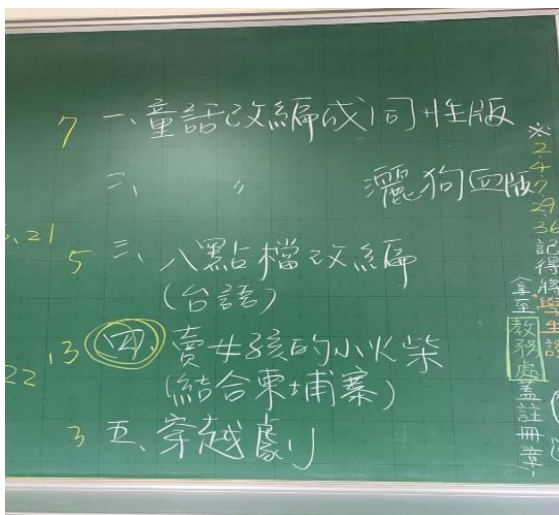 7 一、童話改編成同性版
二、 〃 灑狗血版
,21
5 三、八點檔改編
(台語)
13 四、賣女孩的小火柴
22 (結合柬埔寨)
3 五、穿越劇
※2.4.7.29.36記得將學生證
拿至教務處蓋註冊章,